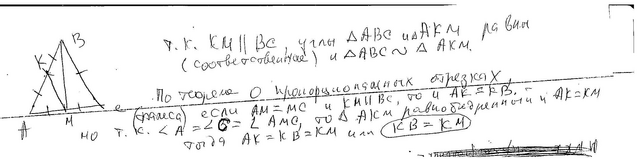 B
K
A
M
C
т.к. KM || BC, углы △ABC и △AKM равны
(соответственные) и △ABC ~ △AKM.
По теореме о пропорциональных отрезках,
(Фалеса) если AM=MC и KM||BC, то и AK=KB.
но т.к. ∠A=∠C=∠AMC, то △AKM равнобедренный и AK=KM
тогда AK=KB=KM или KB=KM